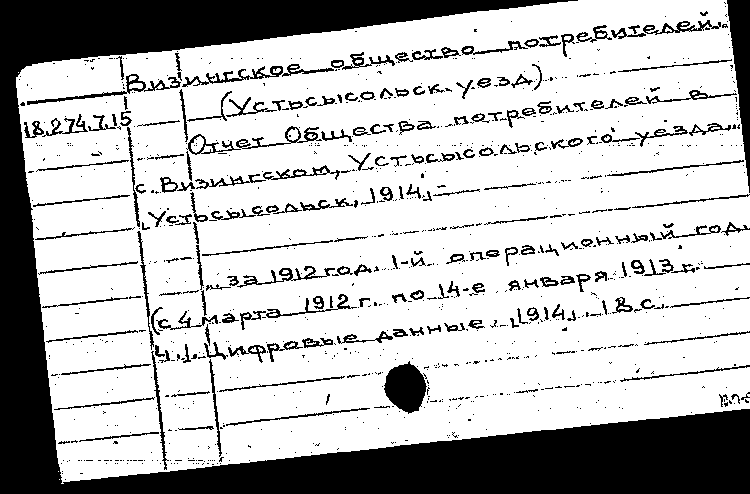 Визингское общество потребителей.
(Устьсысольск. уезд).
18.274.7.15
Отчет Общества потребителей в
с. Визингском, Устьсысольского уезда...
Устьсысольск, 1914,-
.. за 1912 год. 1-й операционный год.
(с 4 марта 1912 г. по 14-е января 1913 г.
Ч.1. Цифровые данные. 1914. 18 с.